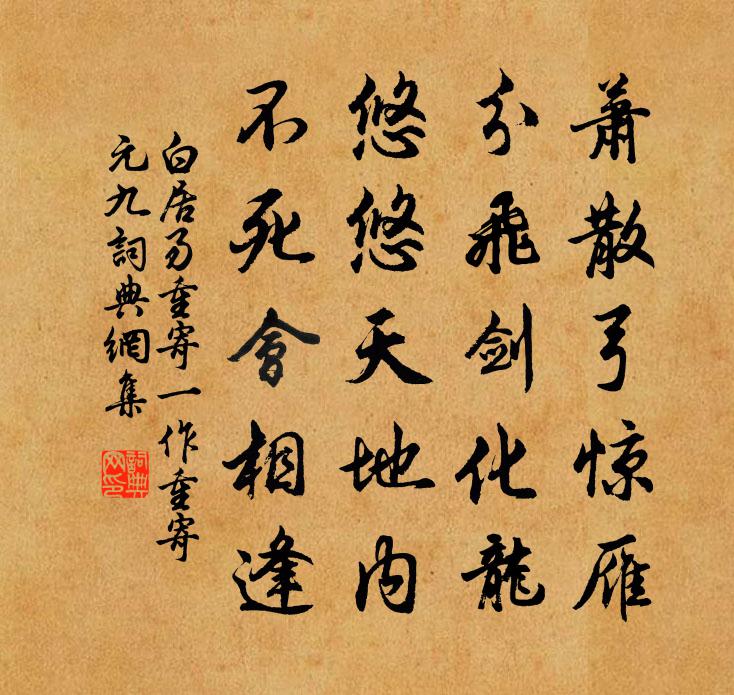 萧散弓惊雁
分飛剑化龍
悠悠天地内
不死會相逢
白居易重寄一作重寄
元九詞典網集
詞典网印